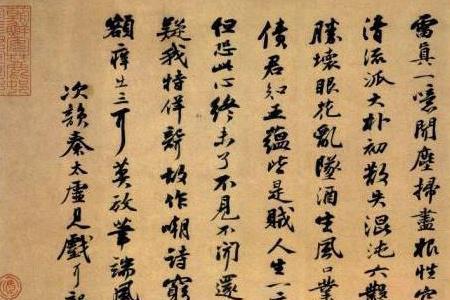 雷真一噫聞塵掃盡根性空
清流派大朴初散失混沌六鑿
勝壞眼花亂墜酒生風口業
債君知五蘊皆是賊人生一
但恐此心終未了不見不聞還
疑我特佯聾故作嘲詩窮
額癢出三耳莫放筆端風
次韻秦太虛見戲耳聾